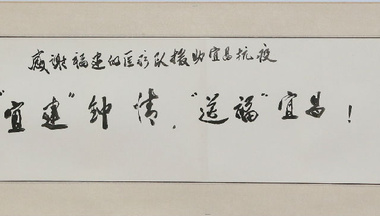 感谢福建的医疗队援助宜昌抗疫
"宜建"钟情，"送福"宜昌！